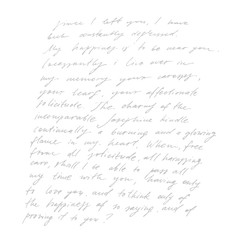 Since I left you, I have
been constantly depressed.
My happiness is to be near you.
Incessantly I live over in
my memory your caresses,
your tears, your affectionate
solicitude. The charms of the
incomparable Josephine kindle
continually a burning and a glowing
flame in my heart. When, free
from all solicitude, all harassing
care, shall I be able to pass all
my time with you, having only
to love you, and to think only of
the happiness of so saying, and of
proving it to you?